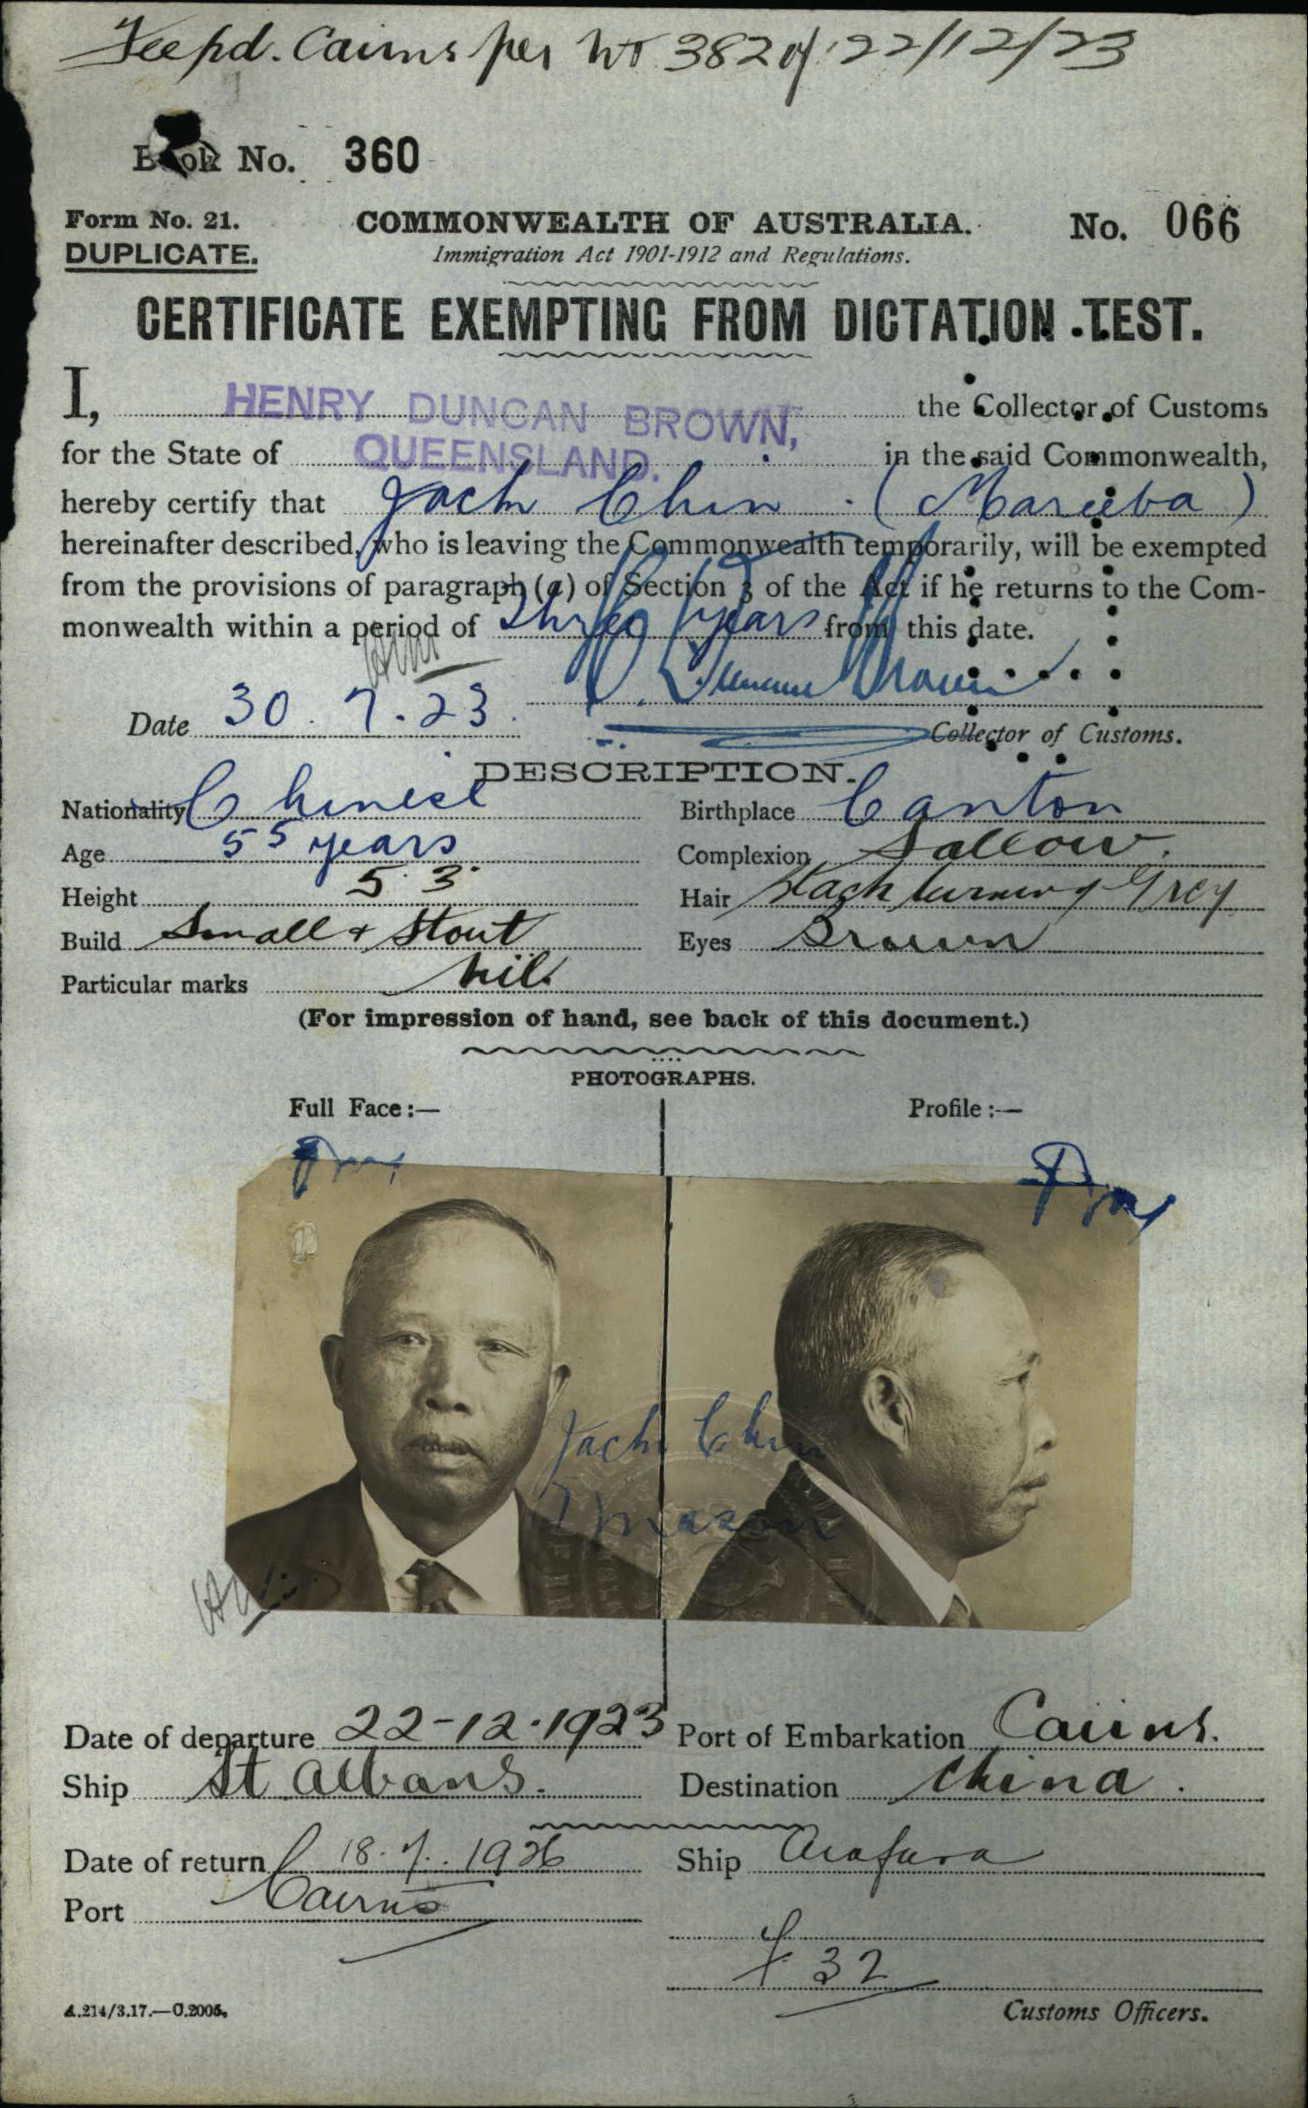 Fee pd. Cairns per No 382 of 22/12/23
Book No. 360
Form No. 21. COMMONWEALTH OF AUSTRALIA. No. 066
DUPLICATE. Immigration Act 1901-1912 and Regulations.
CERTIFICATE EXEMPTING FROM DICTATION TEST.
I, HENRY DUNCAN BROWN, the Collector of Customs
for the State of QUEENSLAND. in the said Commonwealth,
hereby certify that Jack Chin (Mareeba)
hereinafter described, who is leaving the Commonwealth temporarily, will be exempted
from the provisions of paragraph (a) of Section 3 of the Act if he returns to the Com-
monwealth within a period of Three years from this date.
H. Duncan Brown
Date 30.7.23. Collector of Customs.
DESCRIPTION.
Nationality Chinese Birthplace Canton
Age 55 years Complexion Sallow.
Height 5' 3" Hair Black turning Grey
Build Small & Stout Eyes Brown
Particular marks nil.
(For impression of hand, see back of this document.)
PHOTOGRAPHS.
Full Face:— Profile:—
Jack Chin
Date of departure 22-12-1923 Port of Embarkation Cairns.
Ship St Albans. Destination China.
Date of return 18.7.1926 Ship Arafura
Port Cairns
32
A.214/3.17.—C.2005. Customs Officers.